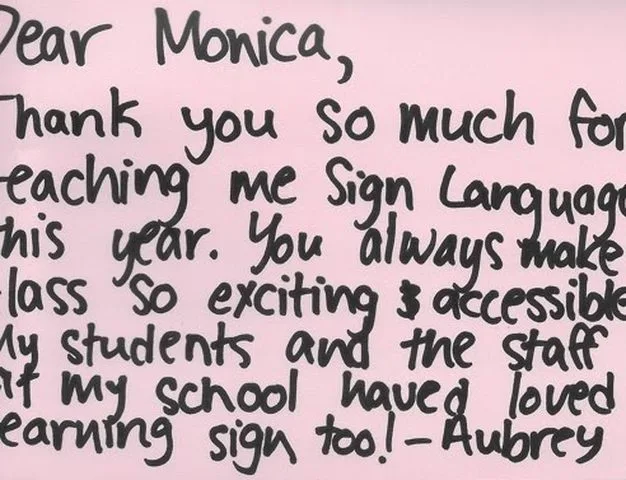 Dear Monica,
Thank you so much for
teaching me Sign Language
this year. You always make
class so exciting & accessible
My students and the staff
at my school haved loved
learning sign too! - Aubrey